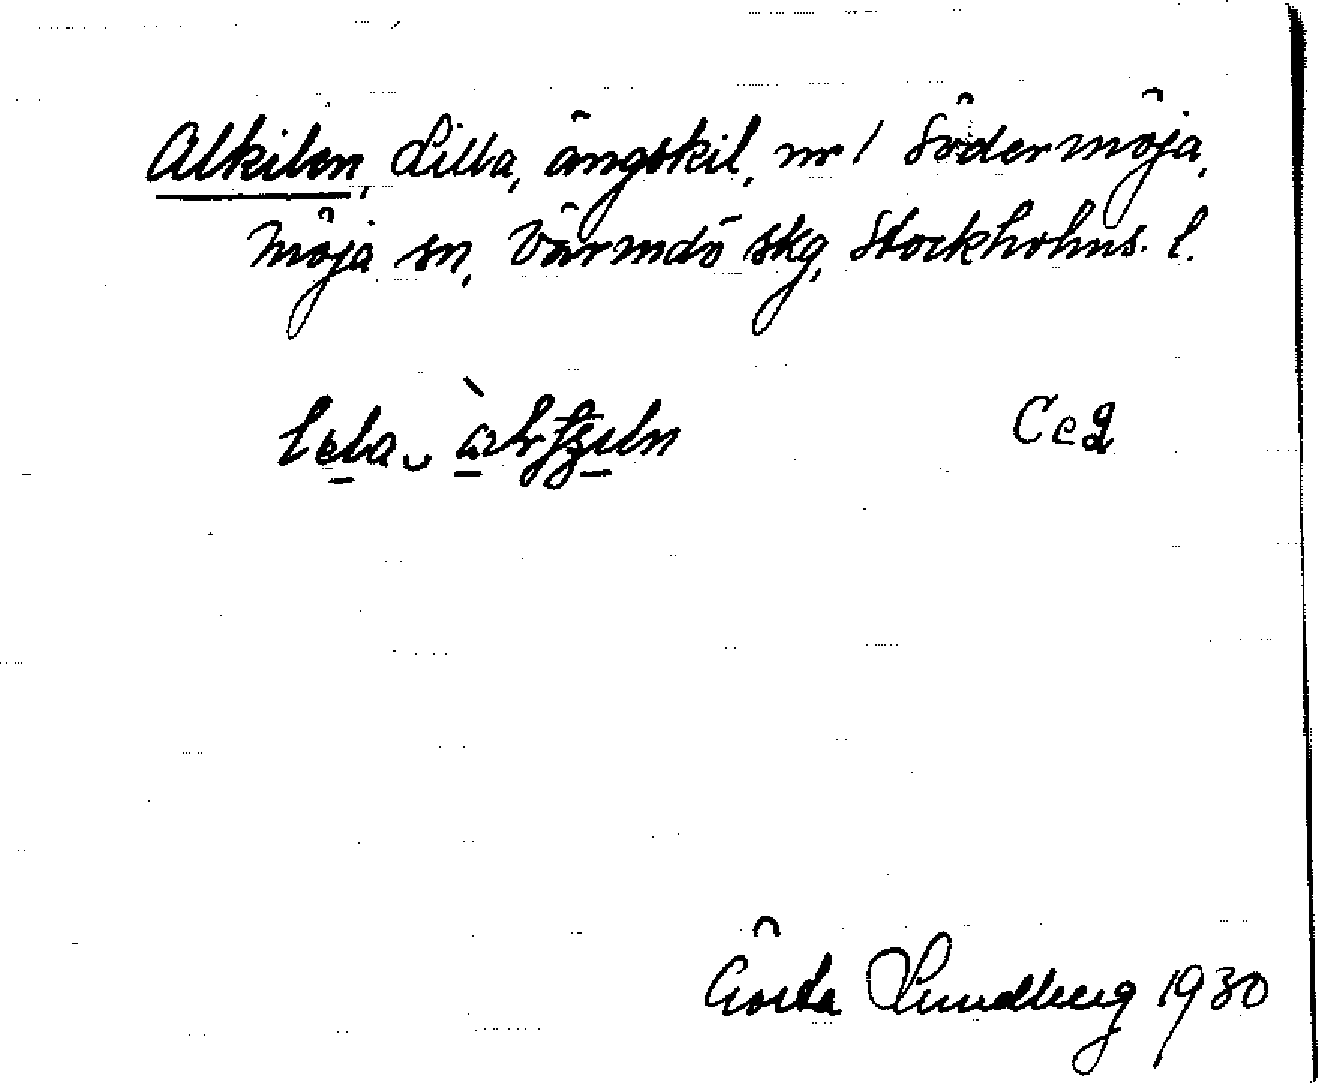 Alkilen, Lilla, ängskil, nr 1 Södermöja,
Möja sn, Värmdö skg, Stockholms. l.
Ceg
Gösta Sundberg 1930